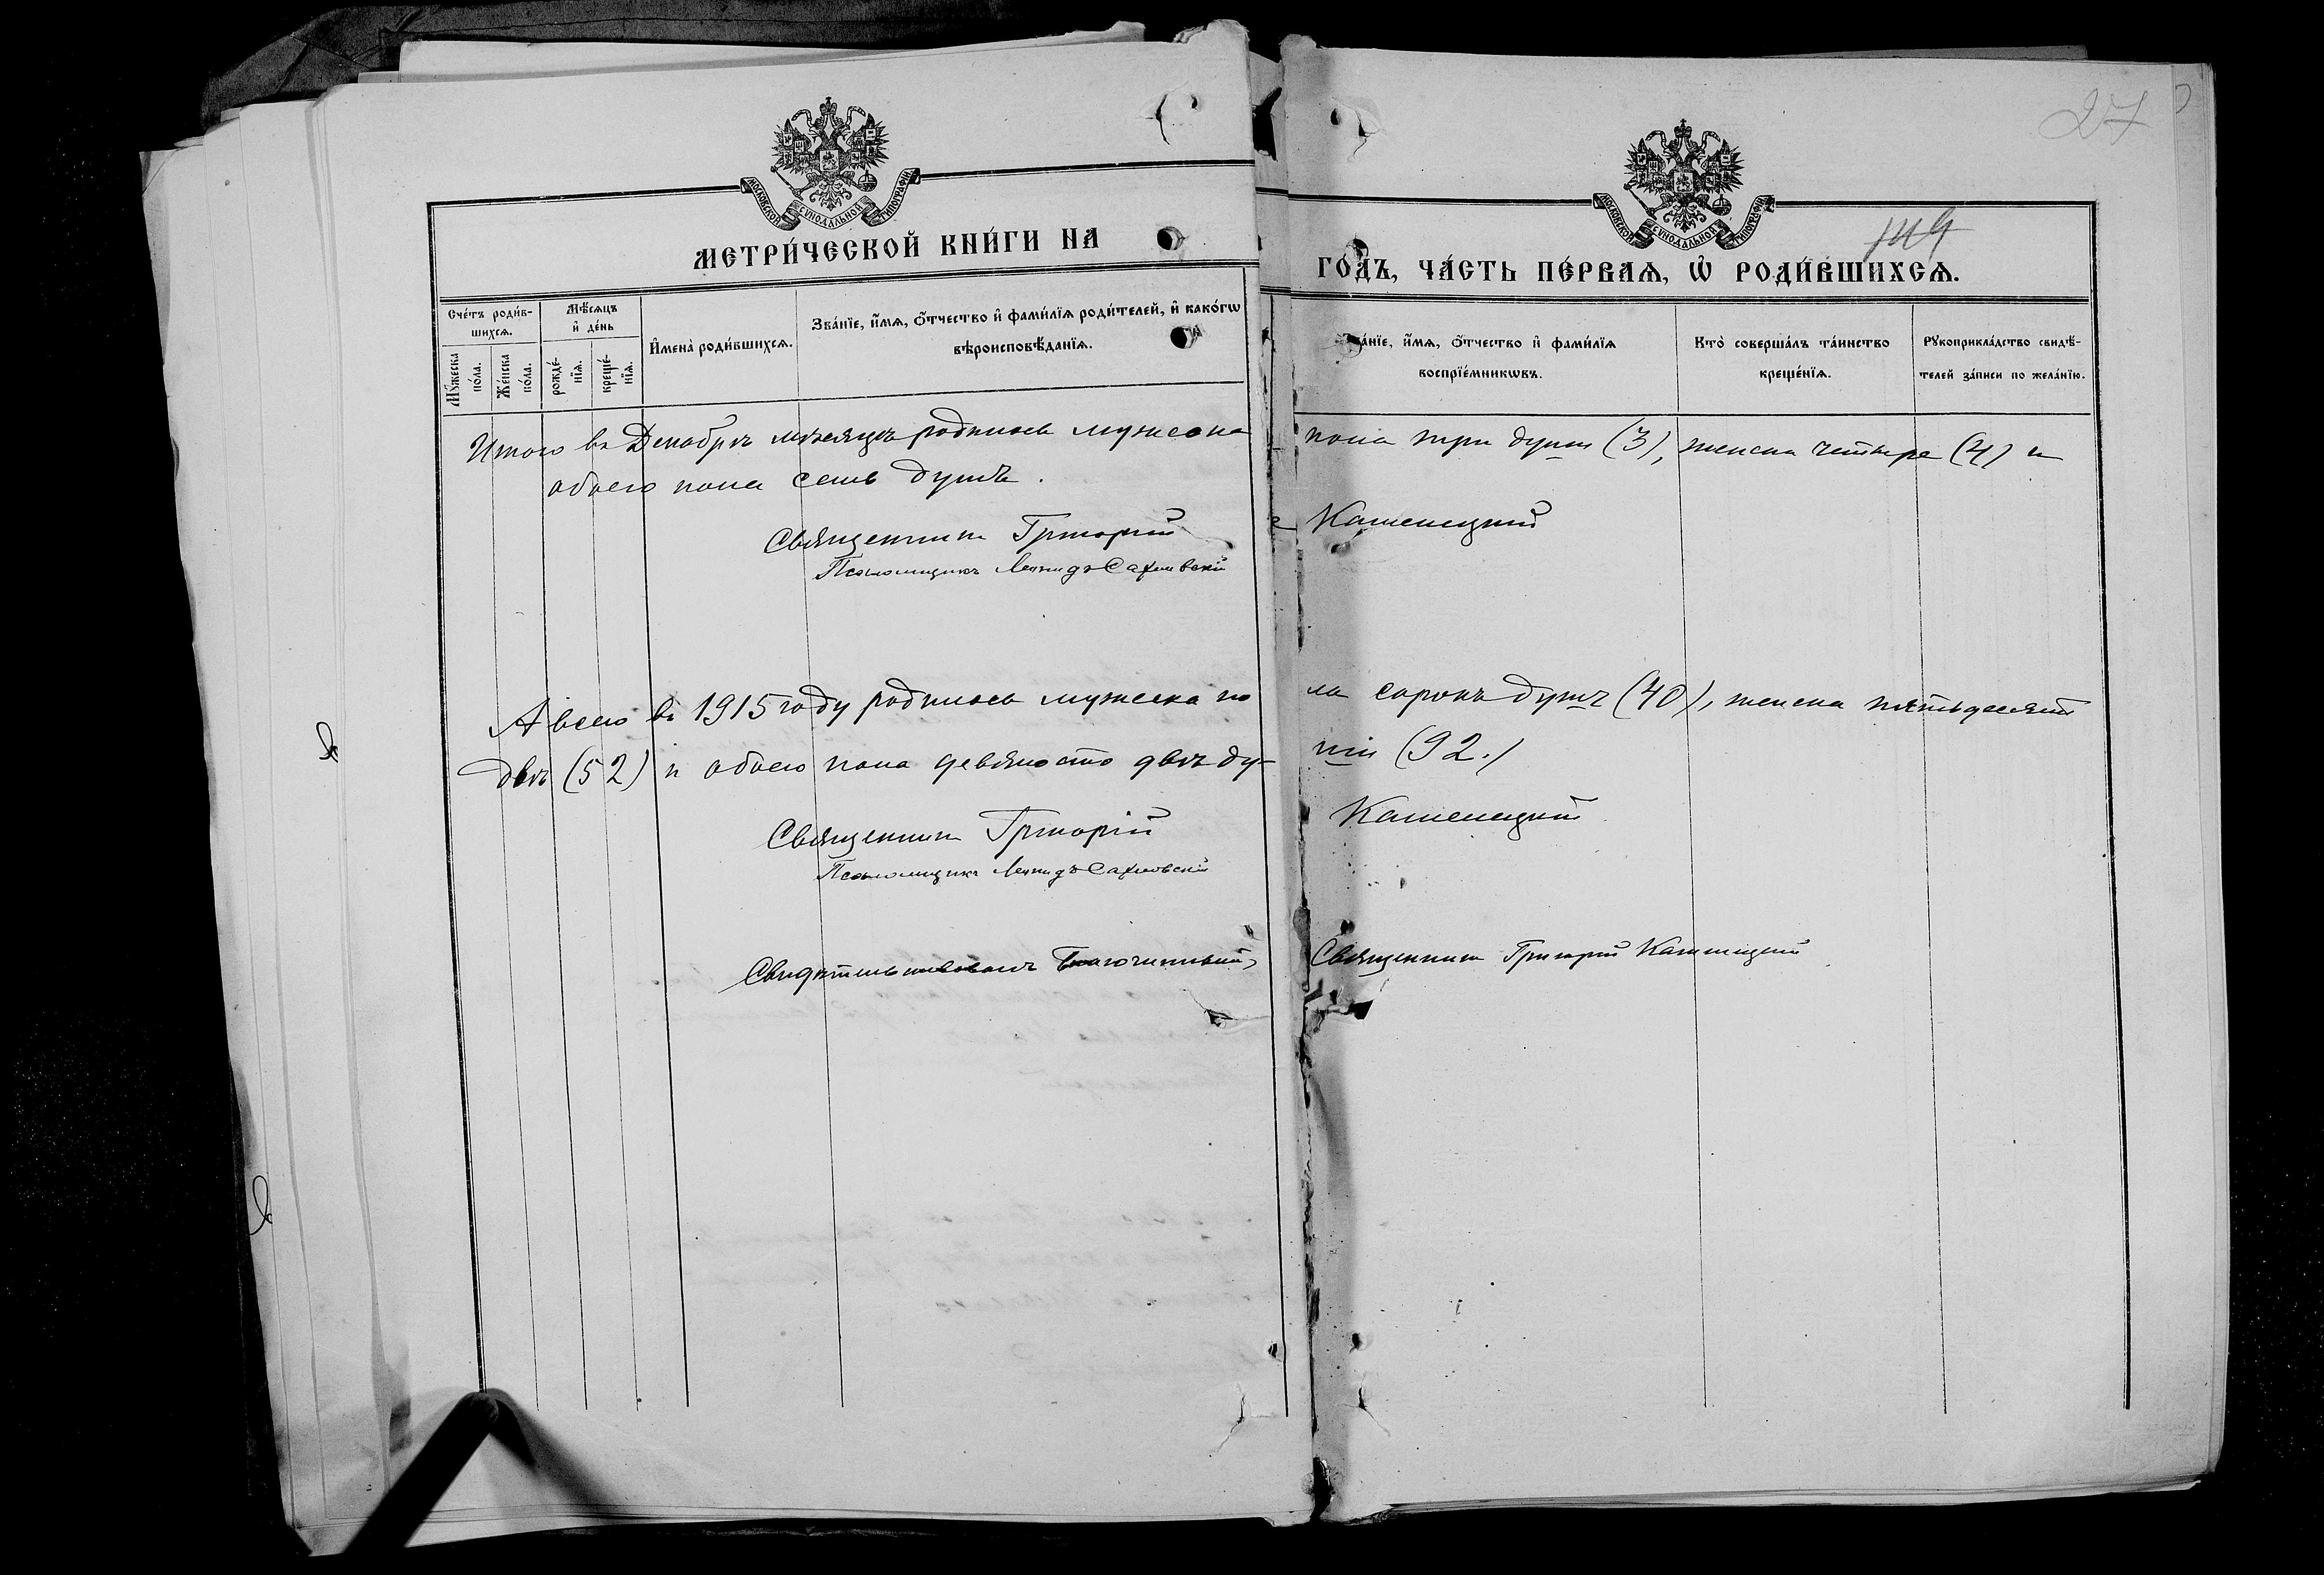 27
МОСКОВСКОЙ СѴНОДАЛЬНОЙ ТИПОГРАФІИ
МОСКОВСКОЙ СѴНОДАЛЬНОЙ ТИПОГРАФІИ
МЕТРИ́ЧЕСКОЙ КНИ́ГИ НА ГО́ДЪ, ЧА́СТЬ ПЕ́РВАѦ, Ѡ РОДИ́ВШИХСѦ.
Сче́тъ роди́в-
шихсѧ.
Мꙋ́жеска
по́ла.
Же́нска
по́ла.
Мѣ́сѧцъ
и҆ де́нь
рожде́-
нїѧ.
креще́-
нїѧ.
И҆мена̀ роди́вшихсѧ.
Зва́нїе, и҆́мѧ, ѻ҆́тчество и҆ фами́лїѧ роди́телей, и҆ како́гѡ
вѣроисповѣ́данїѧ.
Зва́нїе, и҆́мѧ, ѻ҆́тчество и҆ фами́лїѧ
воспрїе́мникѡвъ.
Кто̀ соверша́лъ та́инство
креще́нїѧ.
Рꙋкоприкла́дство свидѣ́-
телей за́писи по жела́нїю.
Итого въ Декабрѣ мѣсяцѣ родилось мужеска пола три души (3), женска четыре (4) и
обоего пола семь душъ.
Священникъ Григорій Каменецкій
Псаломщикъ Леонидъ
А всего въ 1915 году родилось мужеска пола сорокъ душъ (40), женска пятьдесятъ
двѣ (52) и обоего пола девяносто двѣ души (92.)
Священникъ Григорій Каменецкій
Псаломщикъ Леонидъ
Свидѣтельствовалъ Благочинный, Священникъ Григорій Каменецкій